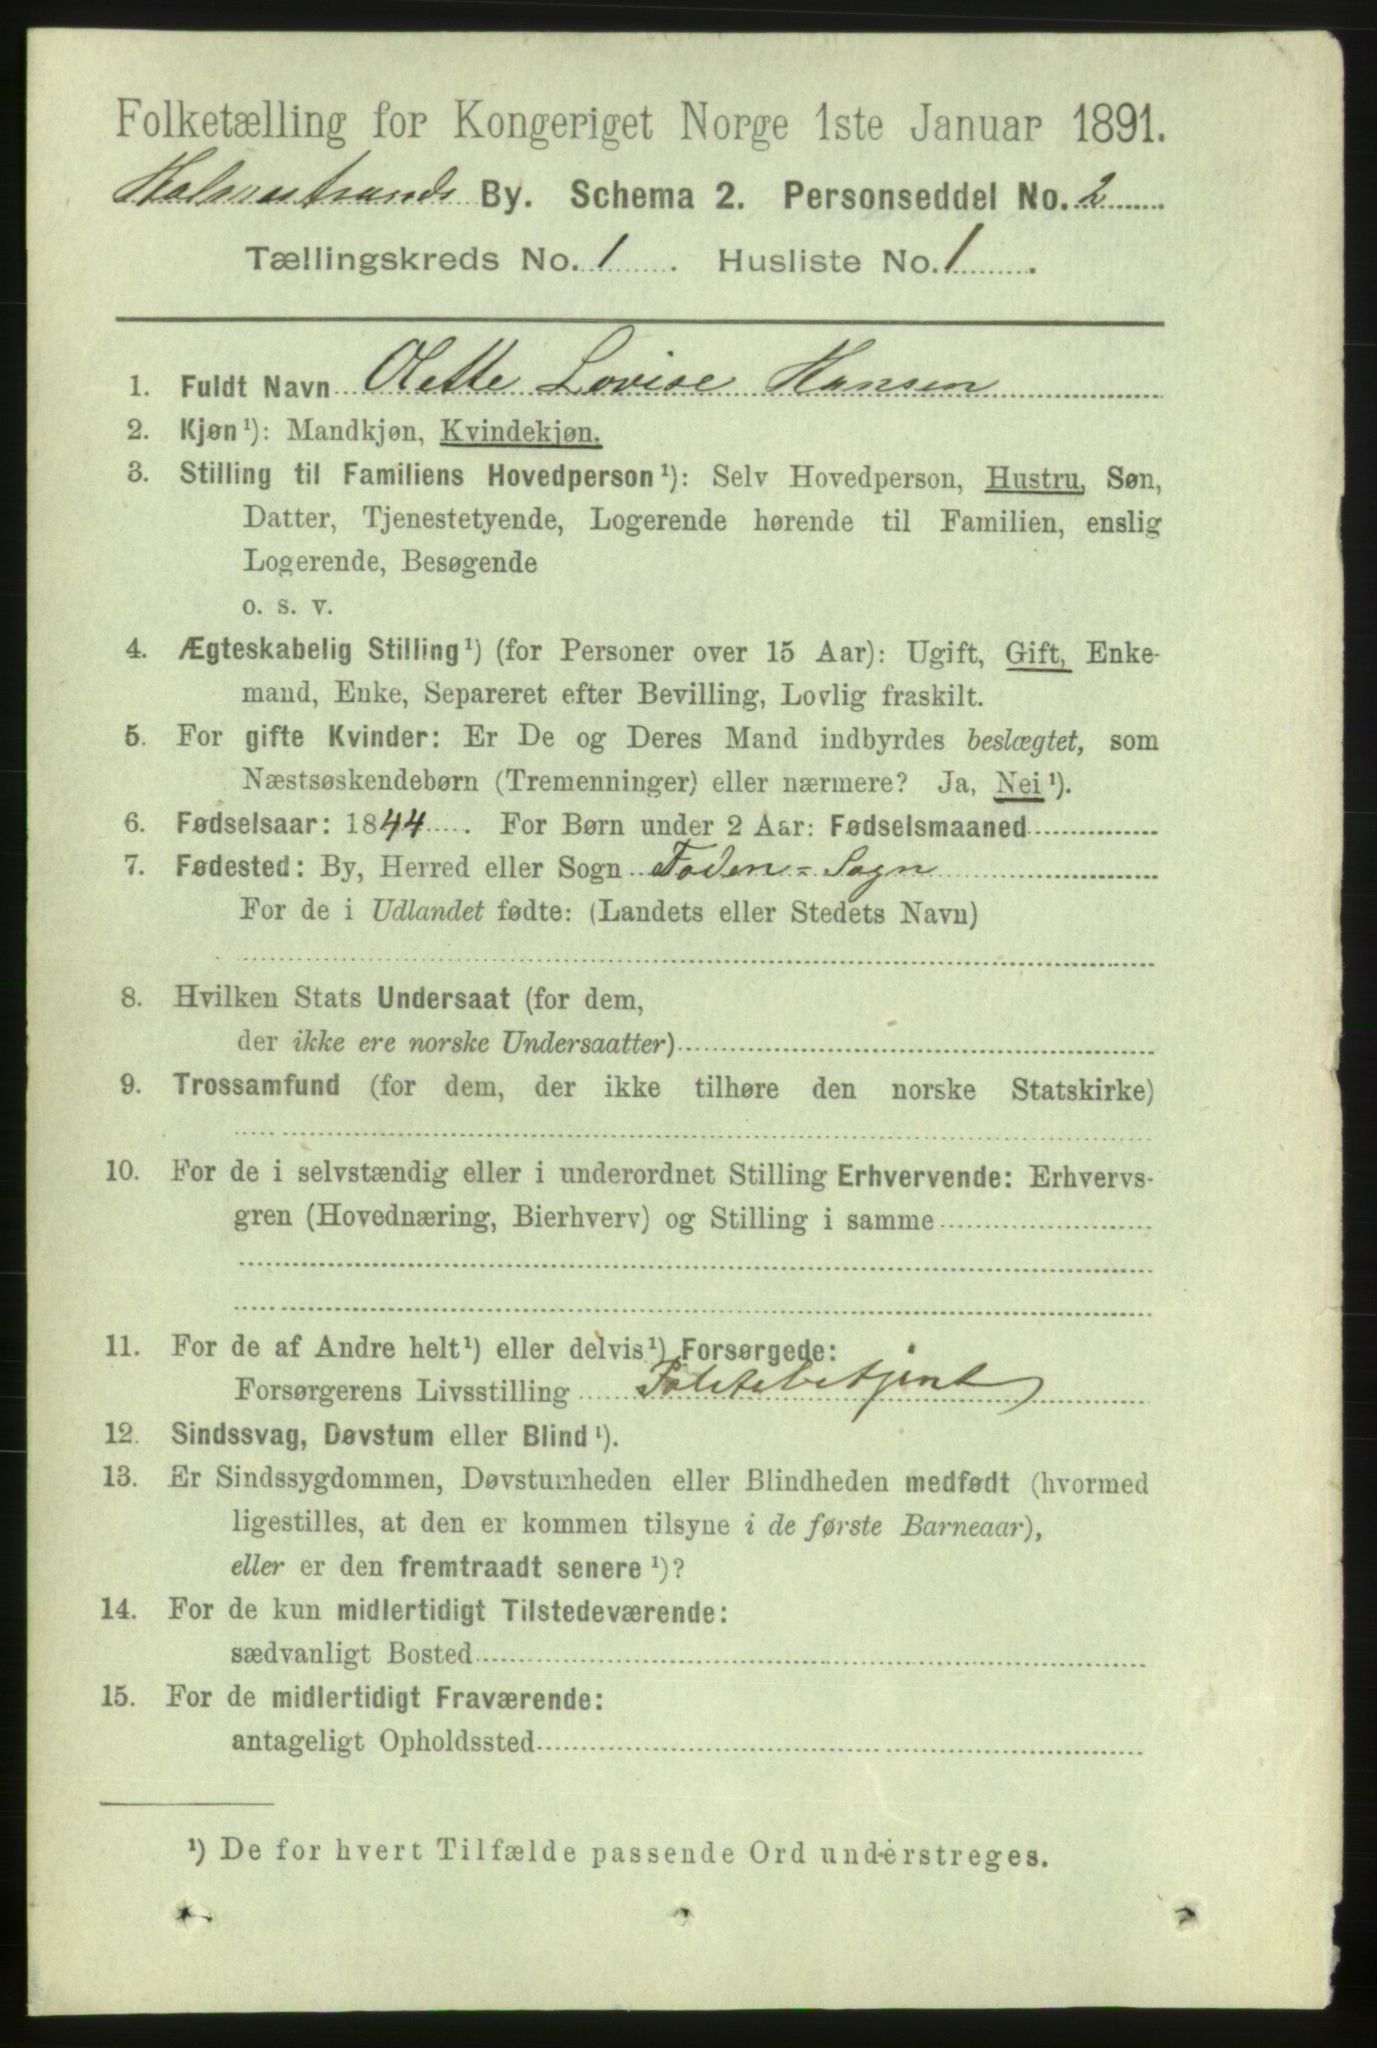 Folketælling for Kongeriget Norge 1ste Januar 1891.
Holmestrands By. Schema 2. Personseddel No. 2
Tællingskreds No. 1. Husliste No. 1.
1. Fuldt Navn Olette Lovise Hansen
2. Kjøn¹): Mandkjøn, Kvindekjøn.
3. Stilling til Familiens Hovedperson¹): Selv Hovedperson, Hustru, Søn,
Datter, Tjenestetyende, Logerende hørende til Familien, enslig
Logerende, Besøgende
o. s. v.
4. Ægteskabelig Stilling¹) (for Personer over 15 Aar): Ugift, Gift, Enke-
mand, Enke, Separeret efter Bevilling, Lovlig fraskilt.
5. For gifte Kvinder: Er De og Deres Mand indbyrdes beslægtet, som
Næstsøskendebørn (Tremenninger) eller nærmere? Ja, Nei¹).
6. Fødselsaar: 1844. For Børn under 2 Aar: Fødselsmaaned
7. Fødested: By, Herred eller Sogn Foden=Sogn
For de i Udlandet fødte: (Landets eller Stedets Navn)
8. Hvilken Stats Undersaat (for dem,
der ikke ere norske Undersaatter)
9. Trossamfund (for dem, der ikke tilhøre den norske Statskirke)
10. For de i selvstændig eller i underordnet Stilling Erhvervende: Erhvervs-
gren (Hovednæring, Bierhverv) og Stilling i samme
11. For de af Andre helt¹) eller delvis¹) Forsørgede:
Forsørgerens Livsstilling Politibetjent
12. Sindssvag, Døvstum eller Blind¹).
13. Er Sindssygdommen, Døvstumheden eller Blindheden medfødt (hvormed
ligestilles, at den er kommen tilsyne i de første Barneaar),
eller er den fremtraadt senere¹)?
14. For de kun midlertidigt Tilstedeværende:
sædvanligt Bosted
15. For de midlertidigt Fraværende:
antageligt Opholdssted
¹) De for hvert Tilfælde passende Ord understreges.